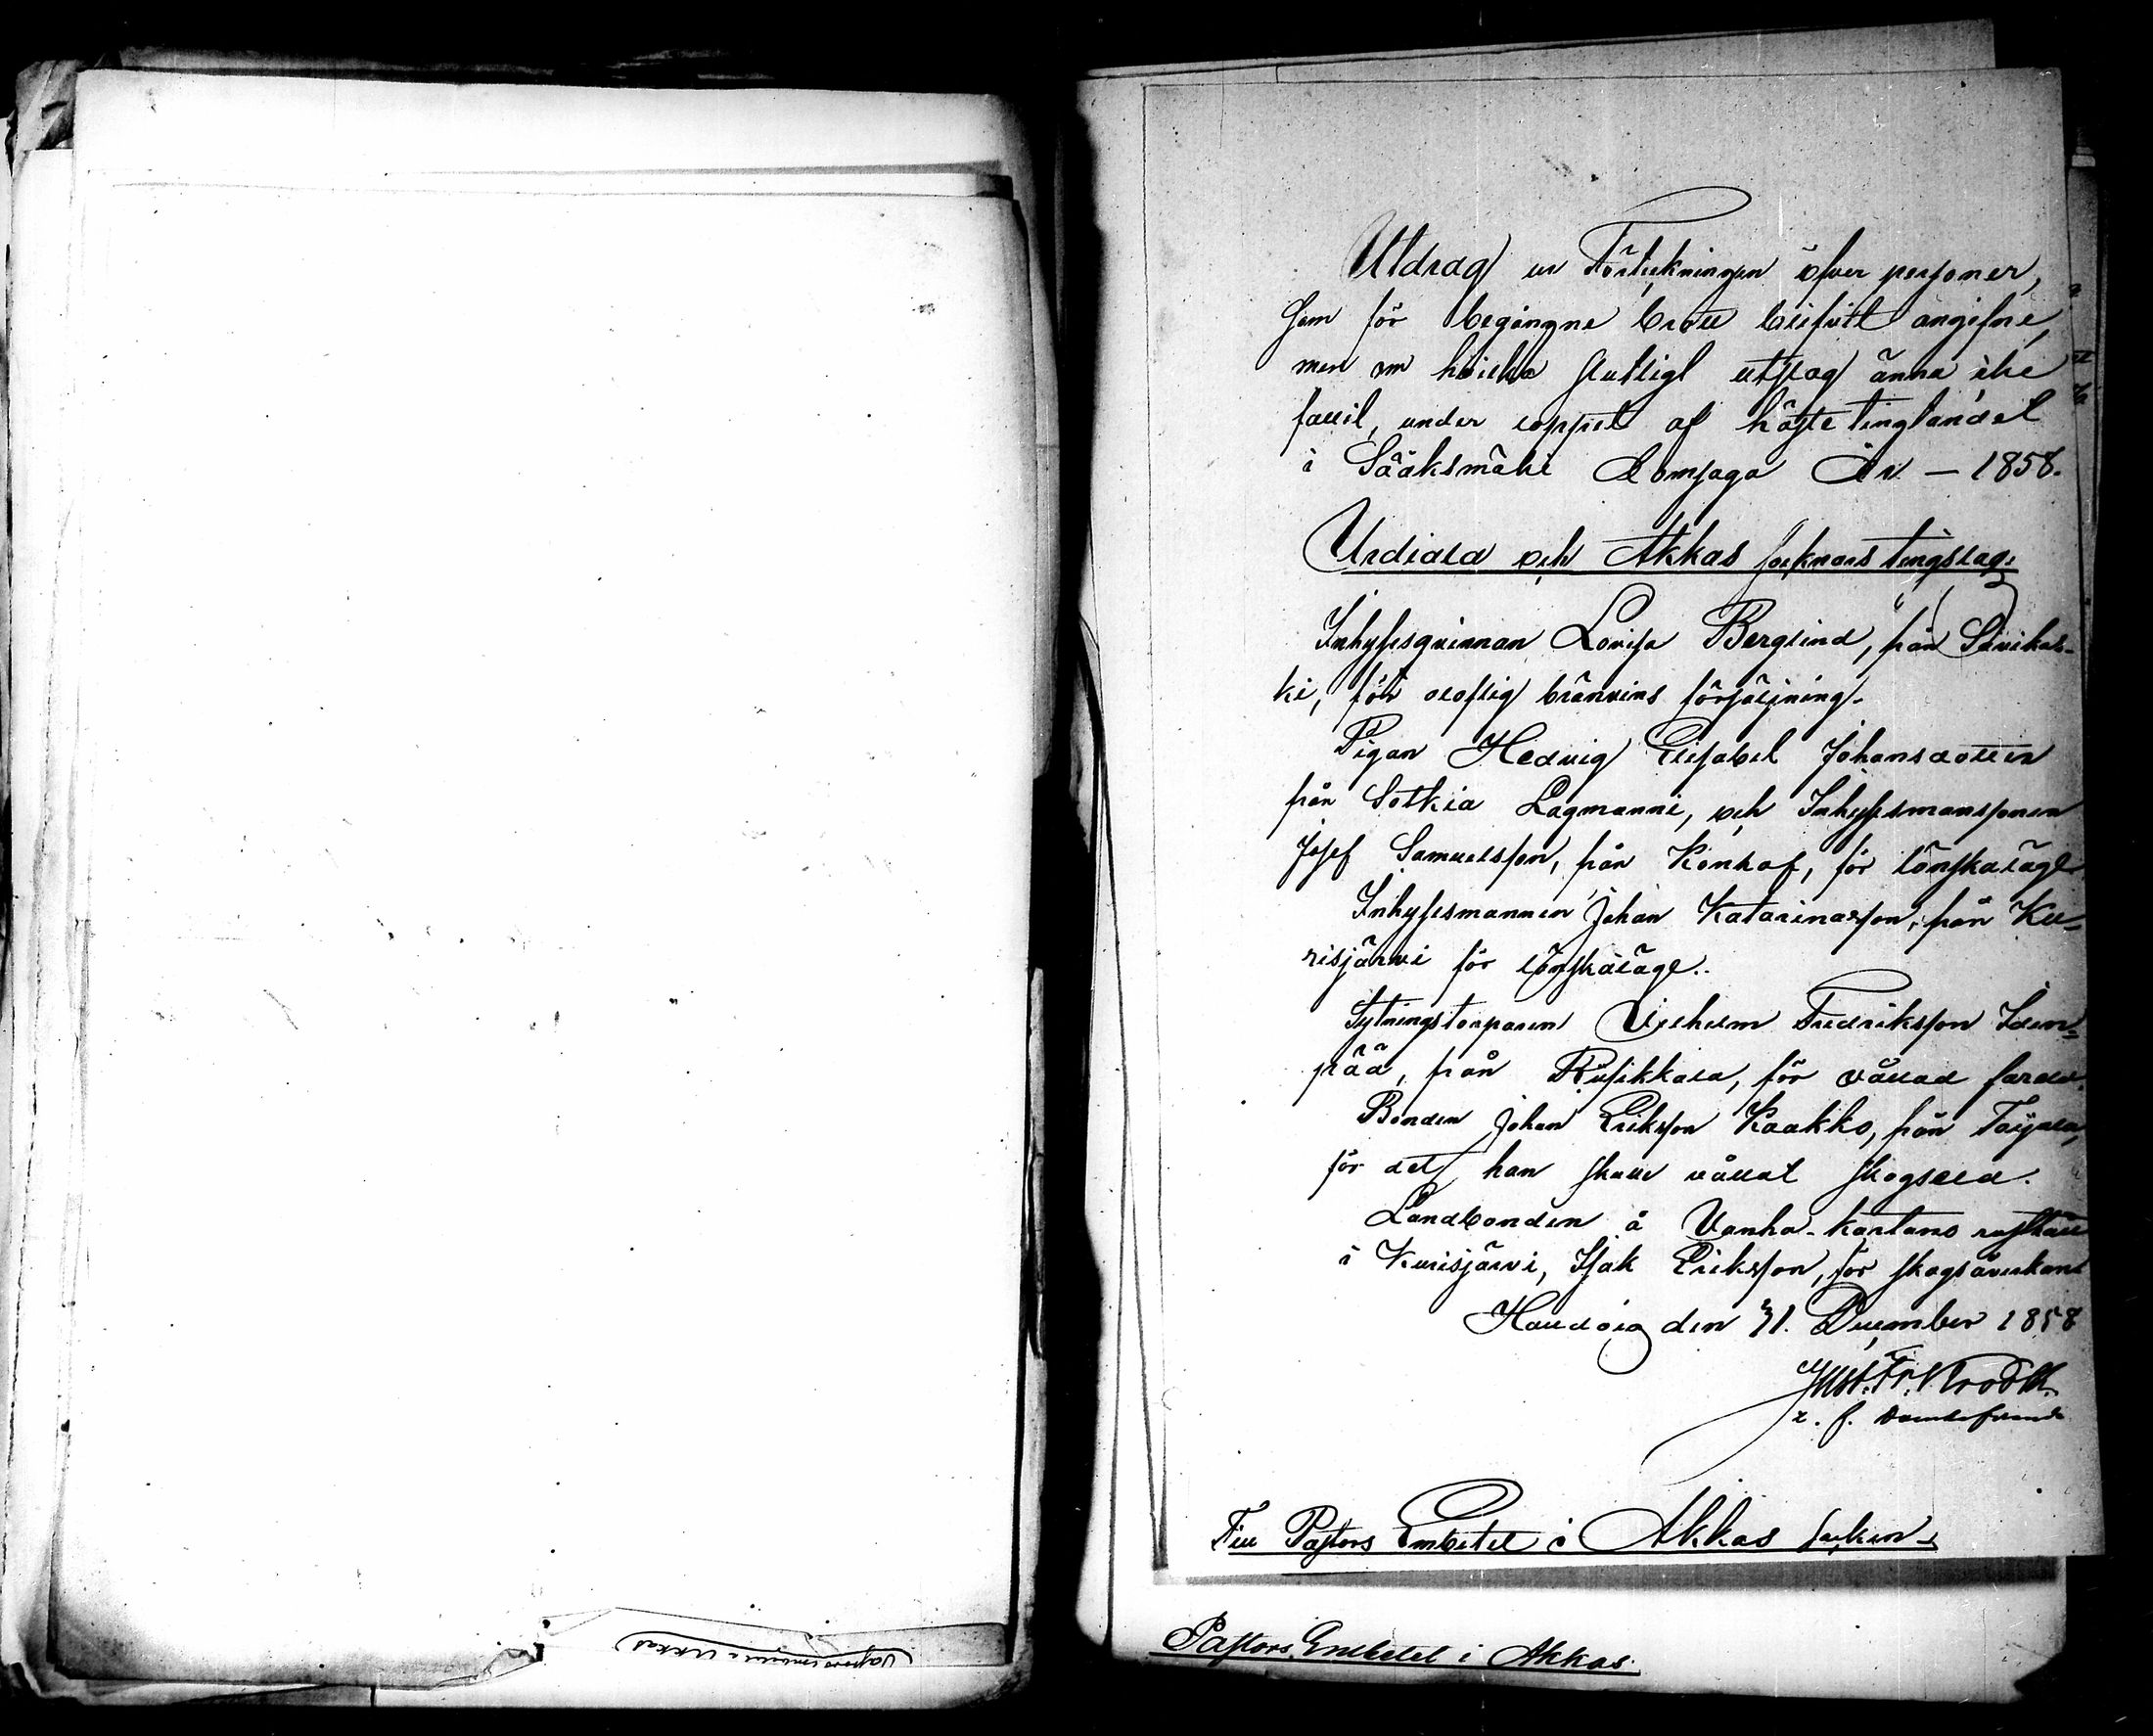 Utdrag ur Förteckningen öfver personer,
som för begångne brott blifvit angifne,
men om hvilka slutligt utslag ännu icke
fallit, under loppet af höste tinglandet
i Sääksmäki Domsaga År – 1858.
Urdiala och Akkas socknars tingslag.
Inhysesqvinnan Lovisa Berglind, från Savikos-
ki, för olaflig bränvins försäljning.
Pigan Hedvig Elisabet Johansdotter
från Sotkia Lagmanni, och Inhysesmanssonen
Josef Samuelsson, från Konhof, för lönskaläge
Inhysesmannen Johan Katarinasson, från Ku-
risjärvi för lönskaläge.
Sytningstorparen Vilhelm Fredriksson Iden-
pää, från Rüsikkala, för vållad
Bonden Johan Eriksson Kaakko, från Toijala,
för det han skall vållat skogseld.
Landbonden å Vanha-kartano rusthåll
i Kurisjärvi, Isak Eriksson, för skogsåverkan
den 31. December 1858
Just. Fr.
e. f. Domhafvande
Till Pastors Embetet i Akkas socken.
Pastors Embetet i Akkas.